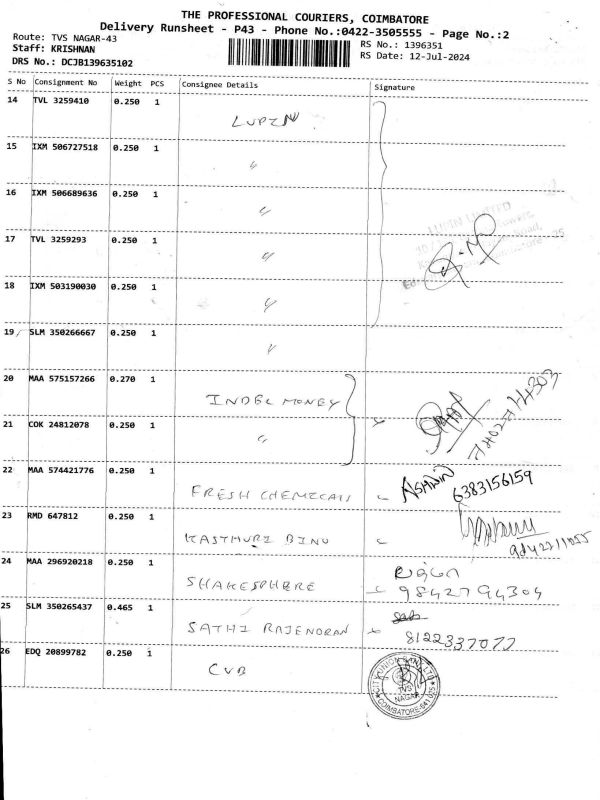 THE PROFESSIONAL COURIERS, COIMBATORE
Delivery Runsheet - P43 - Phone No.:0422-3505555 - Page No.:2
Route: TVS NAGAR-43
RS No.: 1396351
Staff: KRISHNAN
RS Date: 12-Jul-2024
DRS No.: DCJB139635102
S No Consignment No Weight PCS Consignee Details Signature
14 TVL 3259410 0.250 1 LUPIN
15 IXM 506727518 0.250 1 "
16 IXM 506689636 0.250 1 "
LUPIN LIMITED
17 TVL 3259293 0.250 1 "
18 IXM 503190030 0.250 1 "
19 SLM 350266667 0.250 1 "
20 MAA 575157266 0.270 1 INDEL MONEY
21 COK 24812078 0.250 1 "
22 MAA 574421776 0.250 1 FRESH CHEMICALS ASHWIN 6383156159
23 RMD 647812 0.250 1 KASTHURI BINU
24 MAA 296920218 0.250 1 SHAKESPHERE 9842794304
25 SLM 350265437 0.465 1 SATHI RAJENDRAN 8122337077
26 EDQ 20899782 0.250 1 CUB
CITY UNION BANK LTD
TVS NAGAR
COIMBATORE-641 025